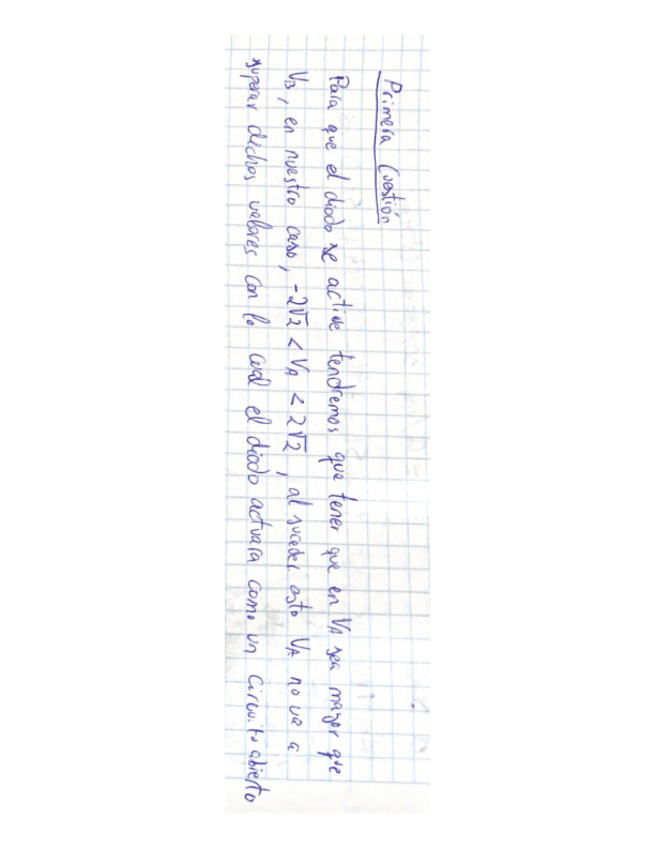 Primera Cuestión
Para que el diodo se active tendremos que tener que en VA sea mayor que
VB, en nuestro caso, -2√2 < VA < 2√2, al suceder esto VA no va a
superar dichos valores con lo cual el diodo actuara como un circuito abierto